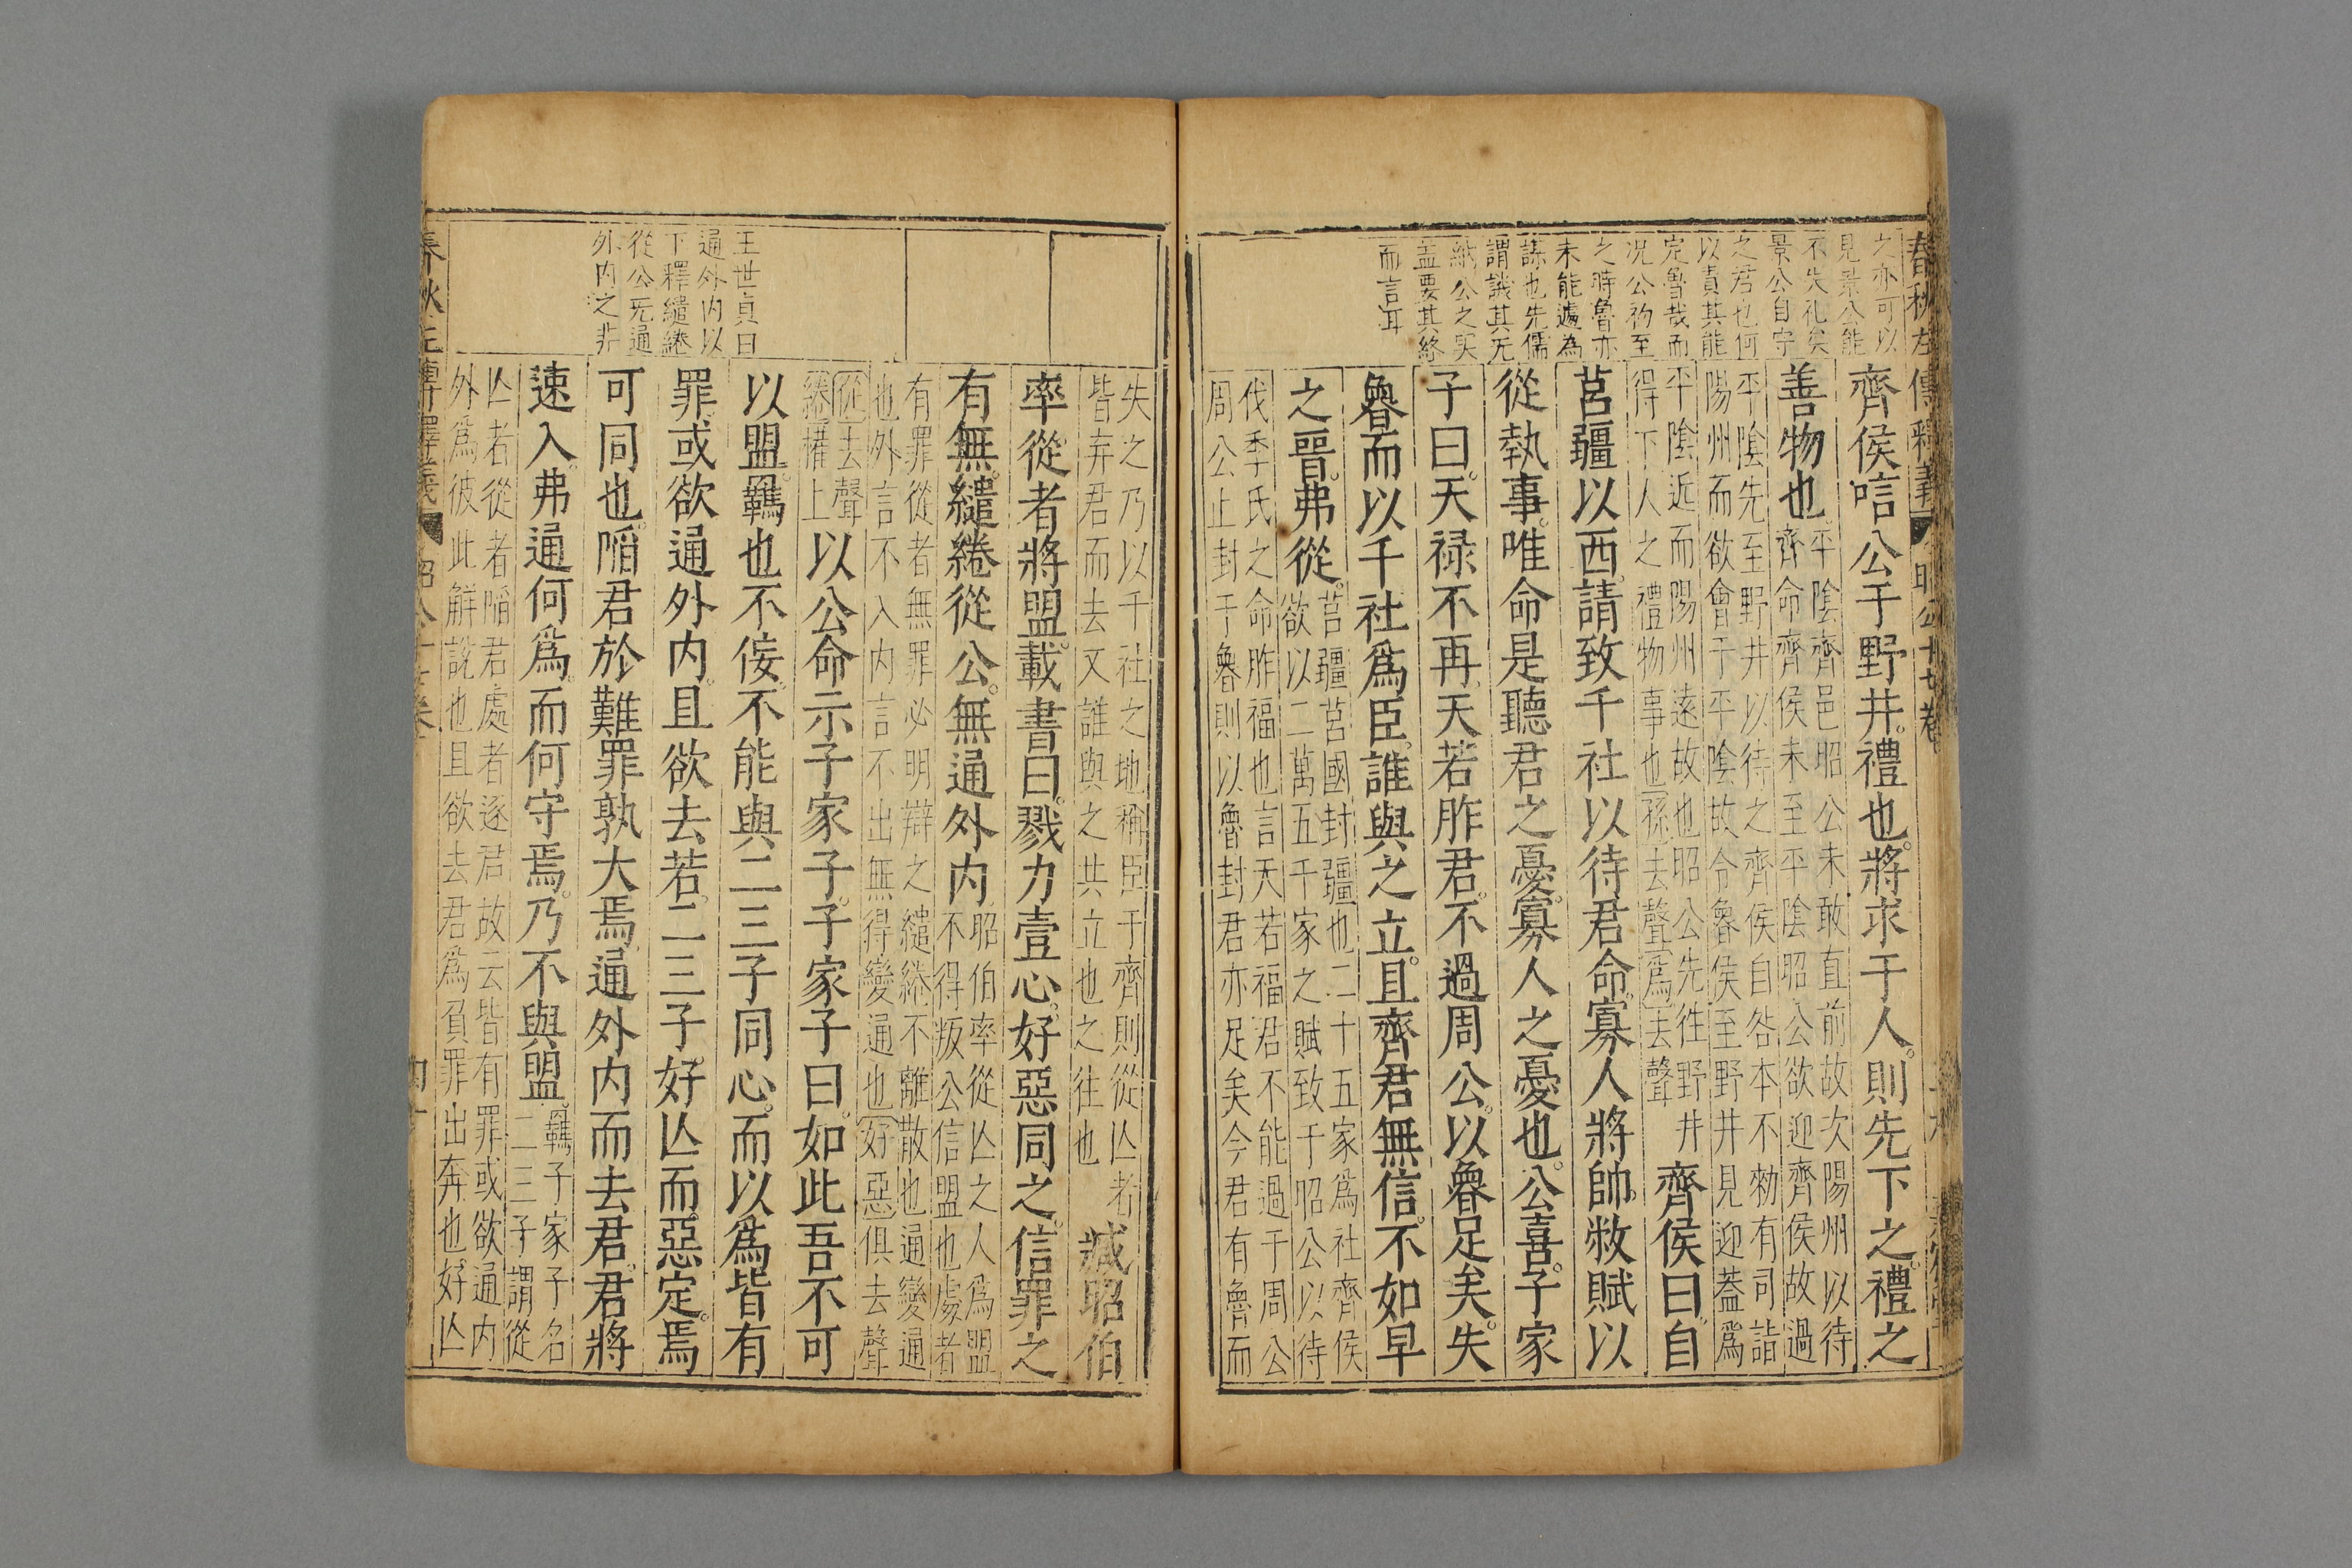 春秋左傳釋義 昭公十七卷
之亦可以
見景公能
不失礼矣
景公自守
之君也何
以責其能
定魯哉而
况公初至
之時魯亦
未能遽為
謀也先儒
謂譏其无
納公之实
盖要其終
而言耳
齊侯唁公于野井。禮也。將求于人。則先下之。禮之
善物也。
平隂齊邑昭公未敢直前故次陽州以待
齊命齊侯未至平隂昭公欲迎齊侯故過
平隂先至野井以待之齊侯自咎本不勑有司詣
陽州而欲會于平隂故令魯侯至野井見迎葢爲
平隂近而陽州遠故也昭公先徃野井
得下人之禮物事也孫去聲爲去聲
齊侯曰。自
莒疆以西。請致千社以待君命。寡人將帥敝賦以
從執事。唯命是聽。君之憂。寡人之憂也。公喜。子家
子曰。天禄不再。天若胙君。不過周公。以魯足矣。失
魯而以千社爲臣。誰與之立。且齊君無信。不如早
之晉。弗從。
莒疆莒國封疆也二十五家爲社齊侯
欲以二萬五千家之賦致于昭公以待
伐季氏之命胙福也言天若福君不能過于周公
周公止封于魯則以魯封君亦足矣今君有魯而
失之乃以千社之地稱臣于齊則從亾者
皆弃君而去又誰與之共立也之往也
臧昭伯
率從者將盟。載書曰。戮力壹心。好惡同之。信罪之
有無。繾綣從公。無通外内。
昭伯率從亾之人爲盟
不得叛公信盟也處者
有罪從者無罪必明辯之繾綣不離散也通變通
也外言不入内言不出無得變通也好惡俱去聲
從去聲
綣權上
以公命示子家子。子家子曰。如此吾不可
以盟。羈也不佞。不能與二三子同心。而以爲皆有
罪。或欲通外内。且欲去若。二三子好亾而惡定。焉
可同也。陷君於難。罪孰大焉。通外内而去君。君將
速入。弗通何爲。而何守焉。乃不與盟。
羈子家子名
二三子謂從
亾者從者陷君處者逐君故云皆有罪或欲通内
外爲彼此解説也且欲去君爲負罪出奔也好亾
王世貞曰
通外内以
下釋繾綣
從公无通
外内之非
春秋左傳釋義 昭公十七卷